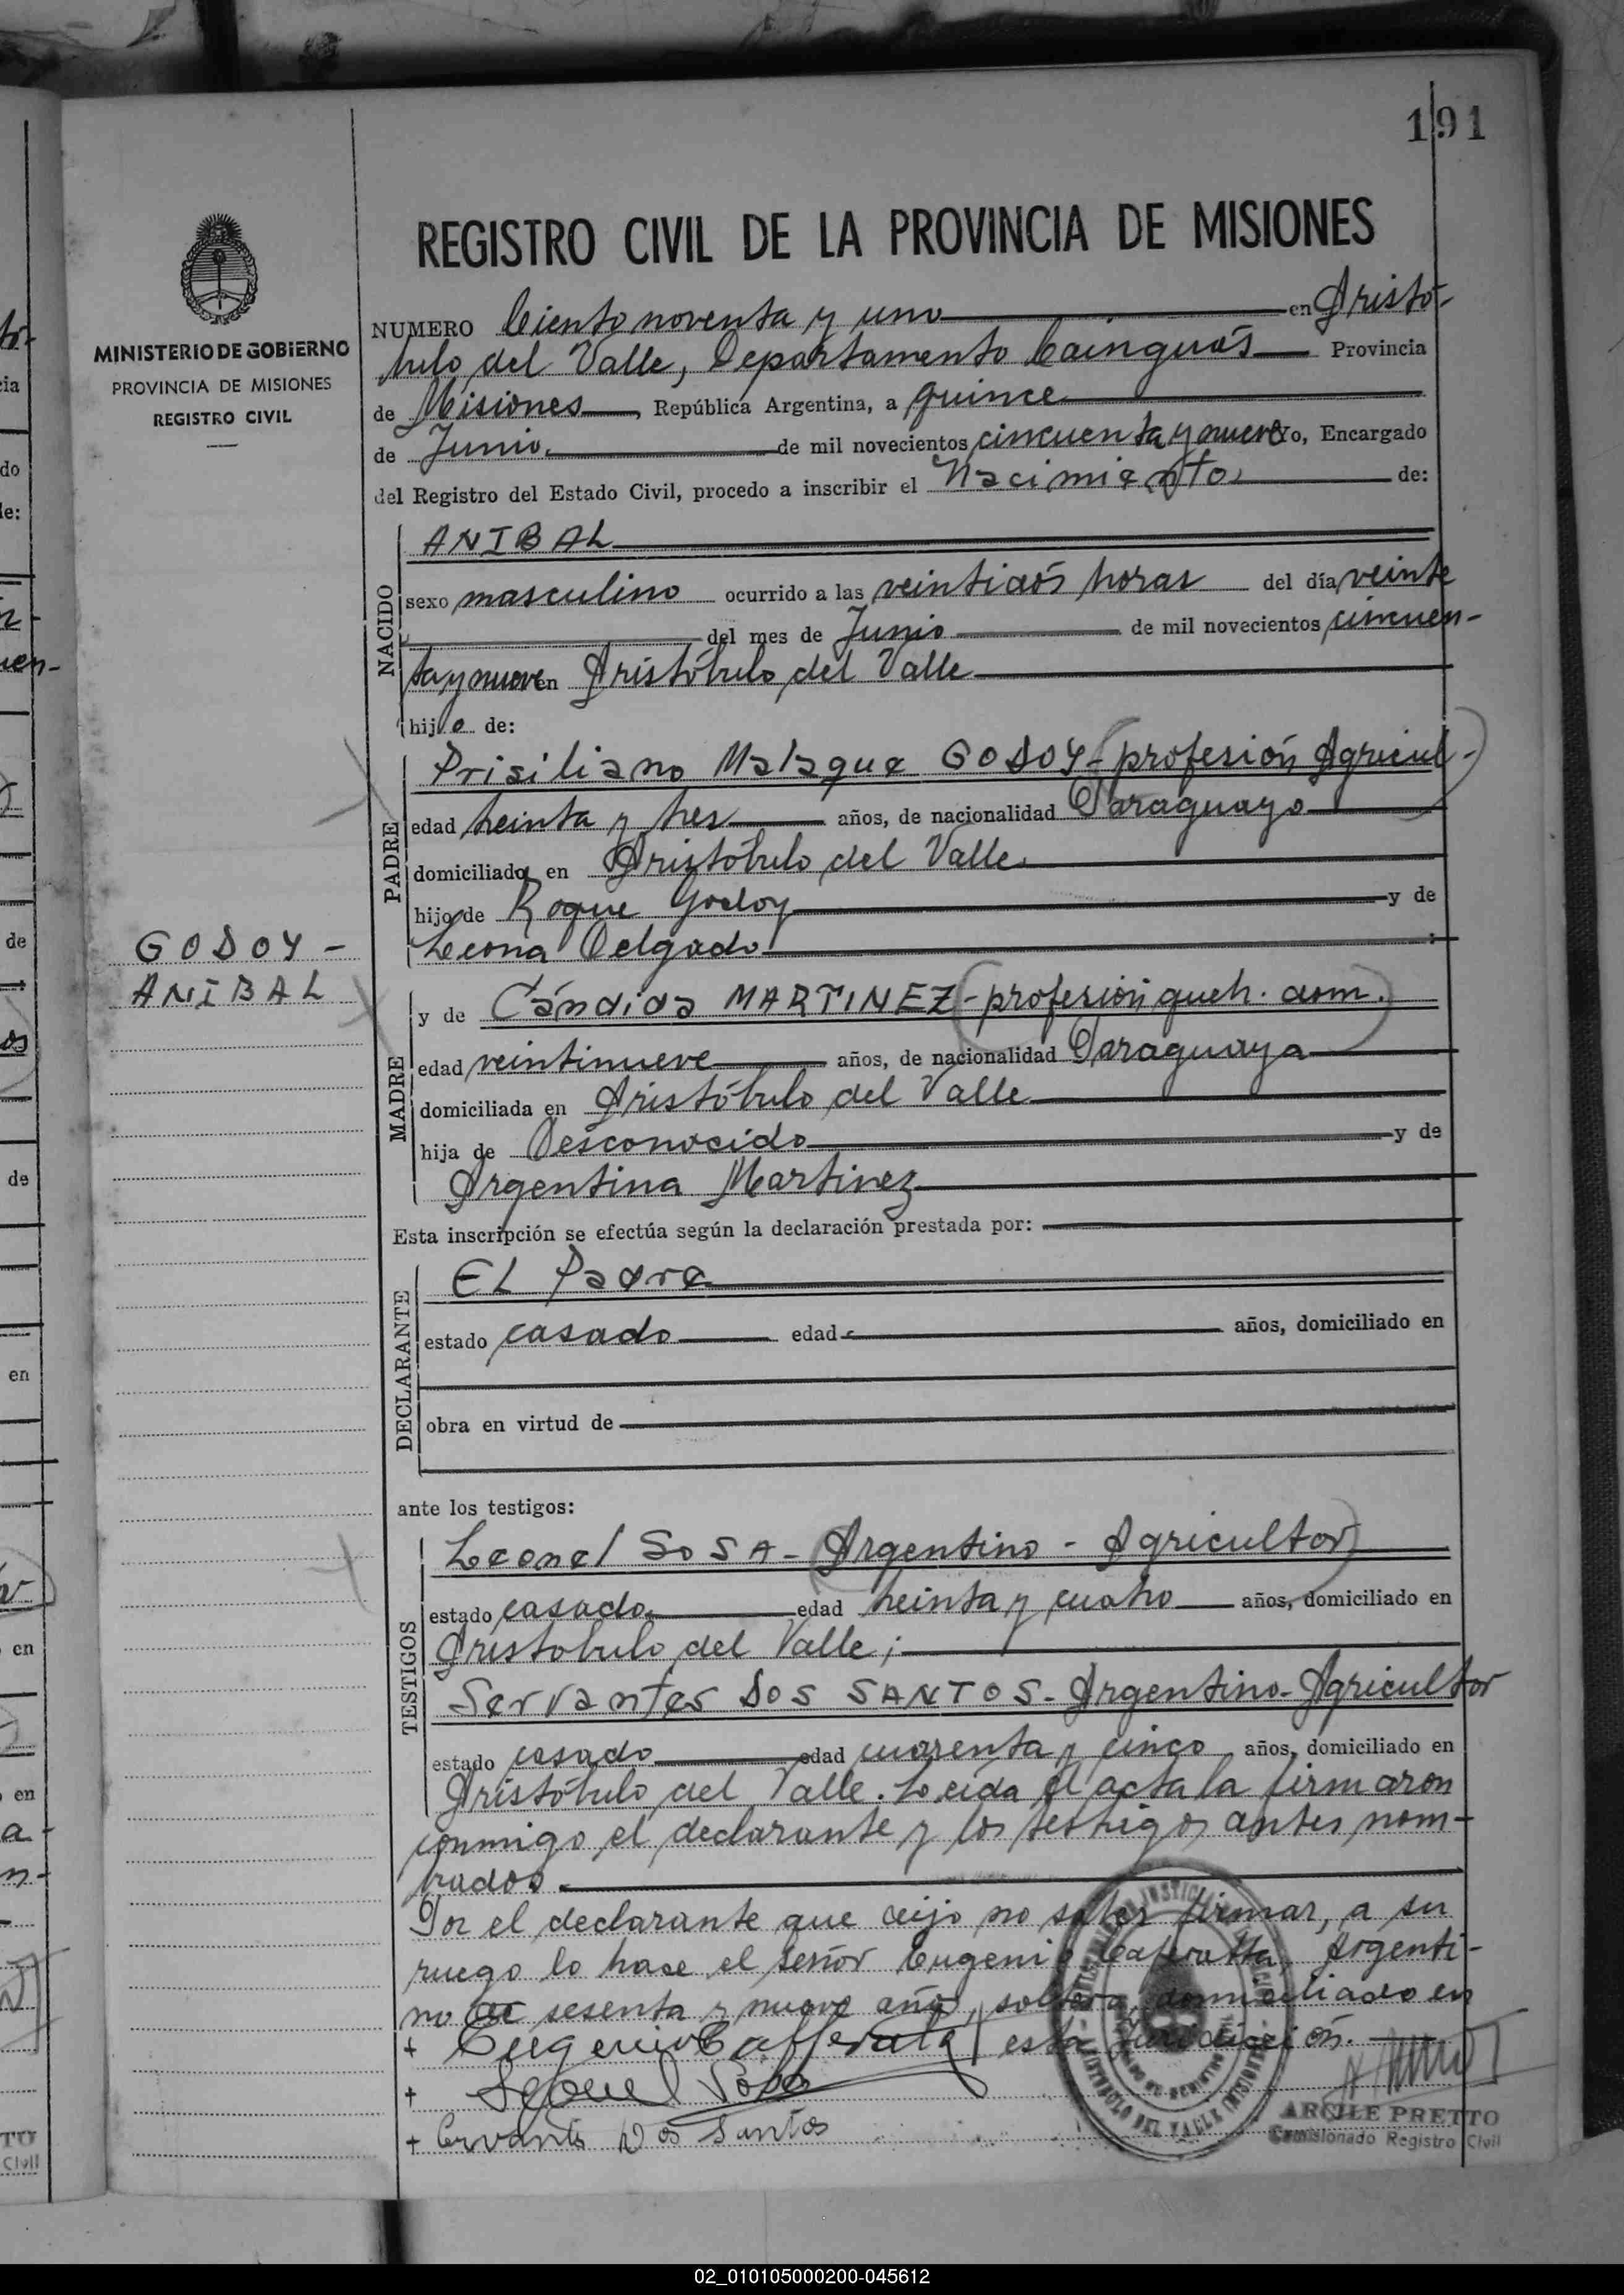 191
REGISTRO CIVIL DE LA PROVINCIA DE MISIONES
MINISTERIO DE GOBIERNO
PROVINCIA DE MISIONES
REGISTRO CIVIL
NUMERO Ciento noventa y uno en Aristó-
bulo del Valle, Departamento Cainguás Provincia
de Misiones, República Argentina, a quince
de Junio de mil novecientos cincuenta y nueve Yo, Encargado
del Registro del Estado Civil, procedo a inscribir el Nacimiento de:
NACIDO
ANIBAL
sexo masculino ocurrido a las veintidós horas del día veinte
del mes de Junio de mil novecientos cincuen-
ta y nueve en Aristóbulo del Valle
hijo de:
PADRE
Prisiliano Malaque GODOY - (profesión Agricul-)
edad treinta y tres años, de nacionalidad Paraguayo
domiciliado en Aristóbulo del Valle
hijo de Roque Godoy y de
Leona Delgado
GODOY -
ANIBAL
MADRE
y de Cándida MARTINEZ - (profesión queh. dom.)
edad veintinueve años, de nacionalidad Paraguaya
domiciliada en Aristóbulo del Valle
hija de Desconocido y de
Argentina Martinez
Esta inscripción se efectúa según la declaración prestada por:
DECLARANTE
EL Padre
estado casado edad años, domiciliado en
obra en virtud de
ante los testigos:
TESTIGOS
Leonel SOSA - (Argentino - Agricultor)
estado casado edad treinta y cuatro años, domiciliado en
Aristobulo del Valle;
Servantes DOS SANTOS - Argentino - Agricultor
estado casado edad cuarenta y cinco años, domiciliado en
Aristóbulo del Valle. Leida el acta la firmaron
conmigo el declarante y los testigos antes nom-
brados.
Por el declarante que dijo no saber firmar, a su
ruego lo hace el señor Eugenio Caferatta, Argenti-
no de sesenta y nueve años, soltero, domiciliado en
+ Eugenio Cafferata esta jurisdicción.
+ Leonel Sosa
+ Cervantes Dos Santos
ARCILE PRETTO
Comisionado Registro Civil
02_010105000200-045612